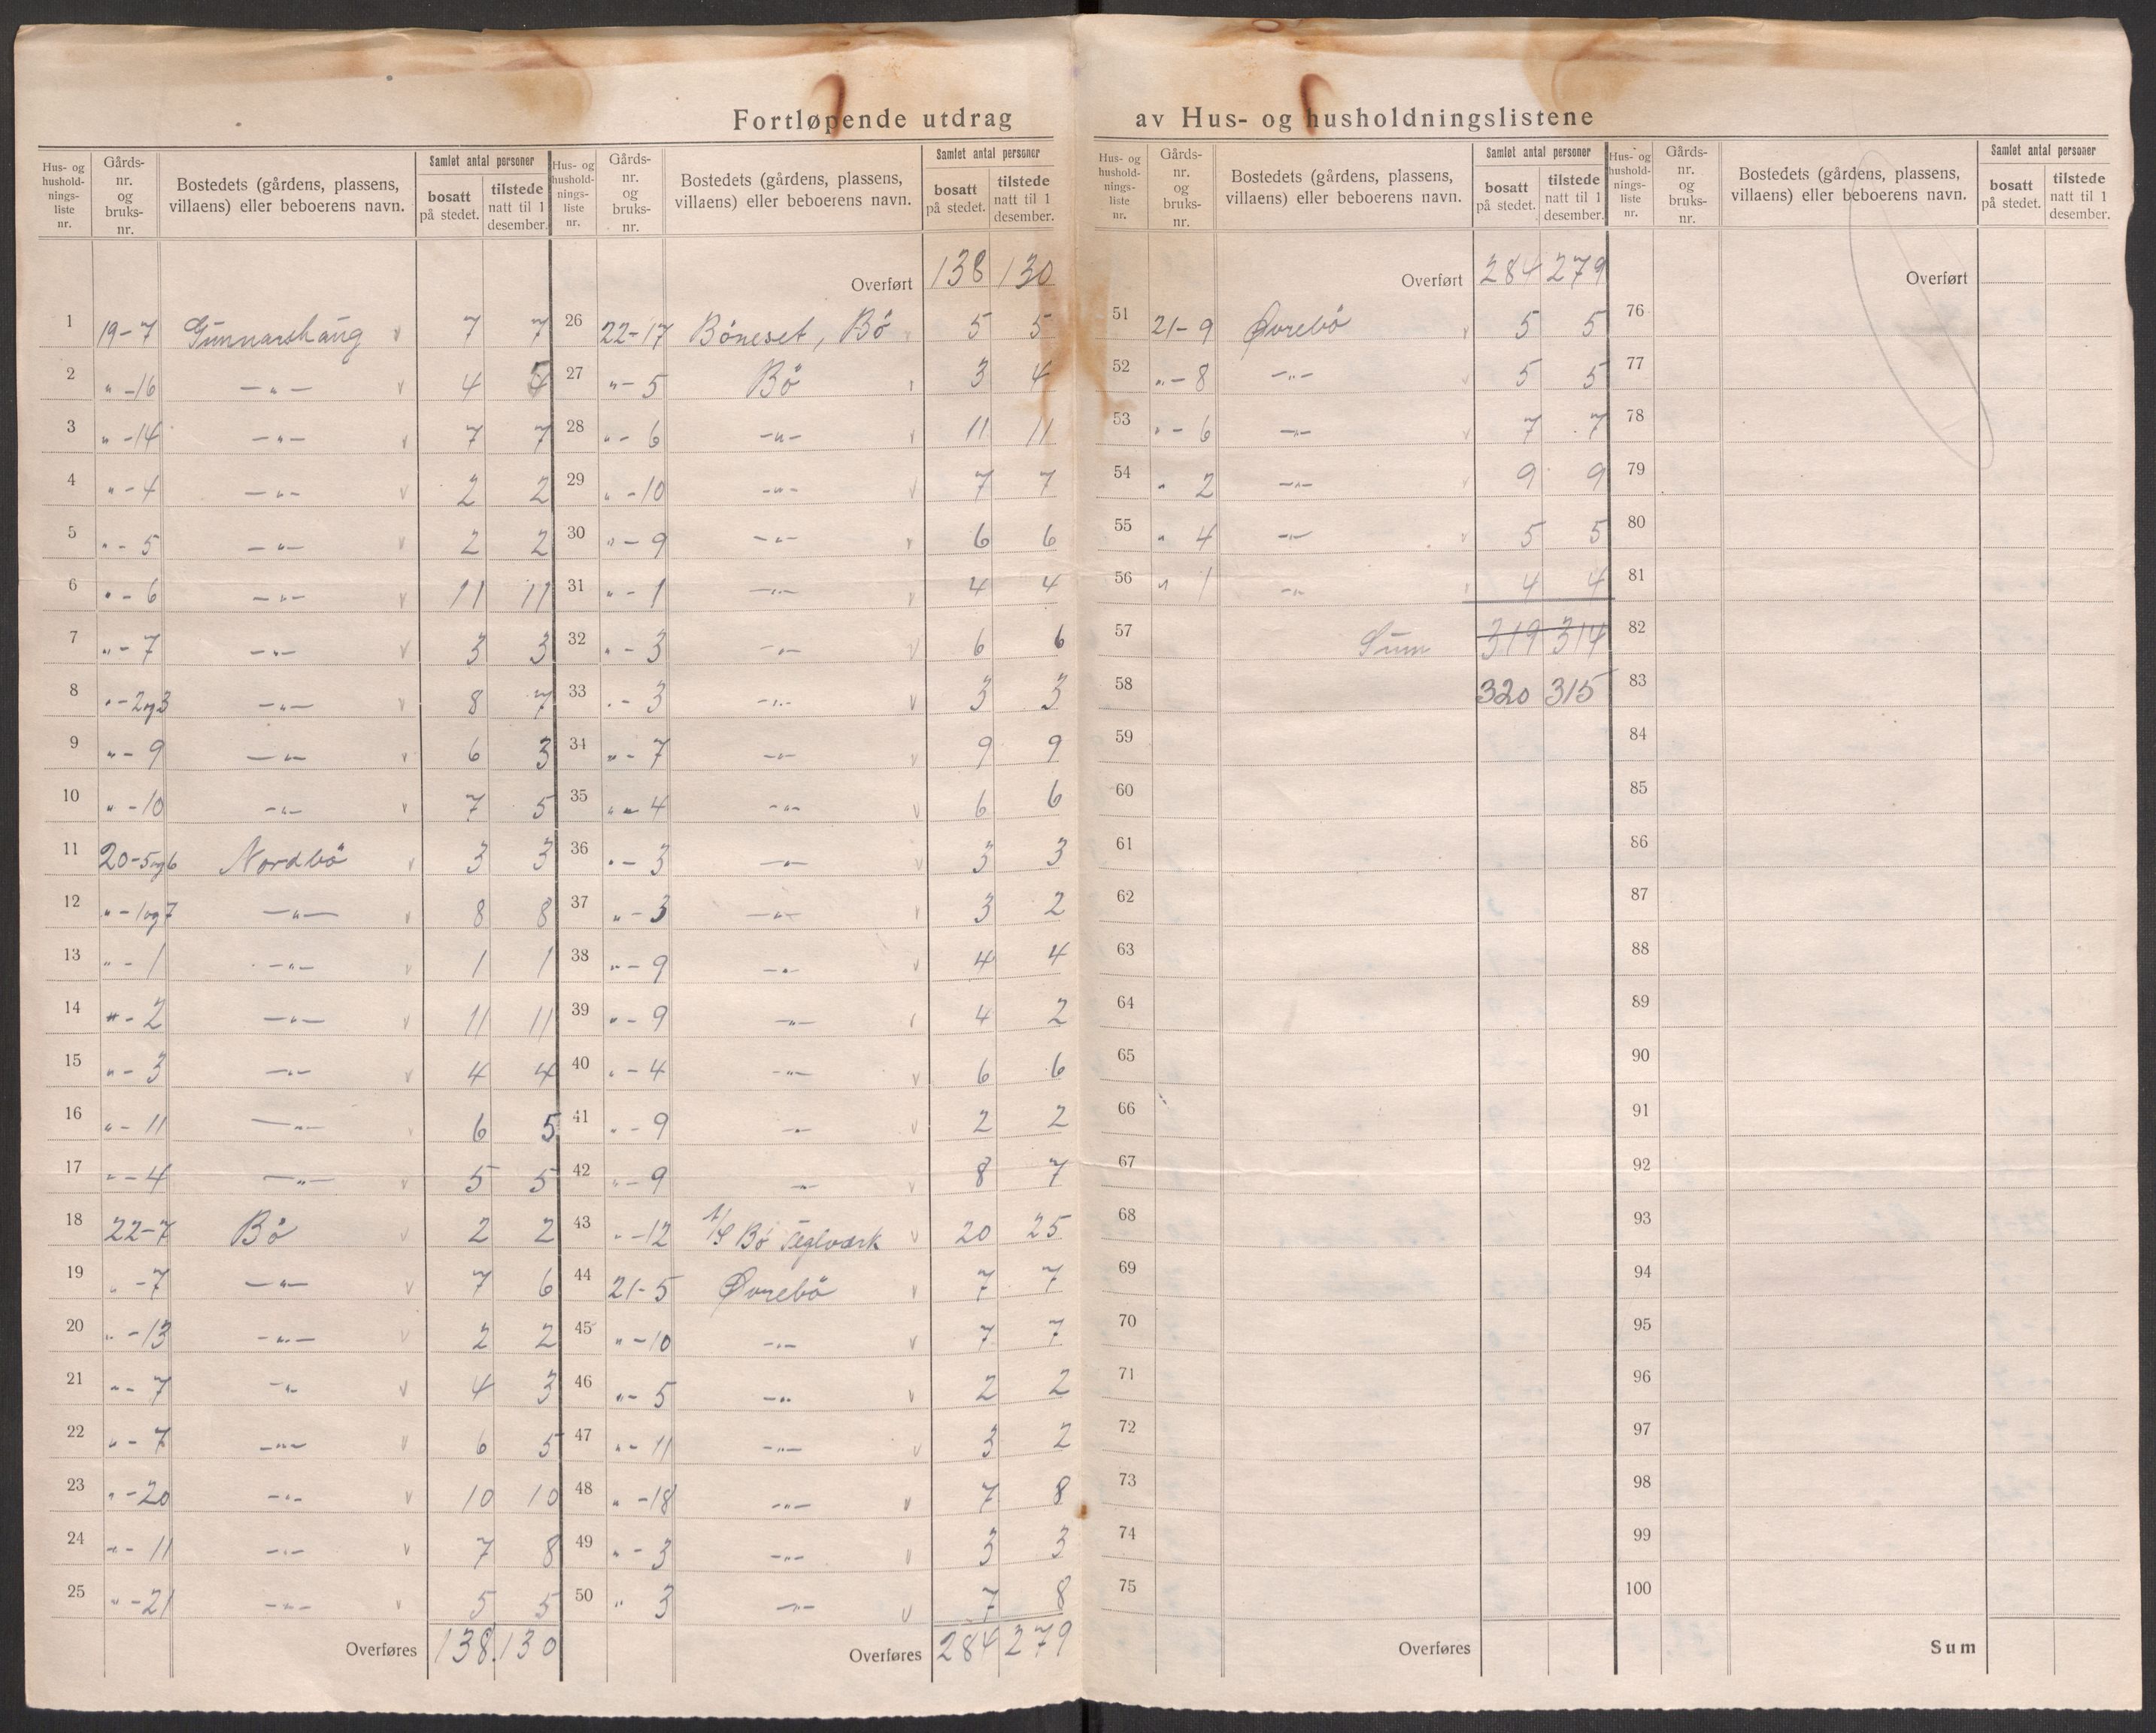 Fortløpende utdrag av Hus- og husholdningslistene
Hus- og hushold-nings-liste nr. | Gårds-nr. og bruks-nr. | Bostedets (gårdens, plassens, villaens) eller beboerens navn. | Samlet antal personer | bosatt på stedet. | tilstede natt til 1 desember.
1 19-7 Gunnarshaug v 7 7
2 " -16 —"— v 4 5
3 " -14 —"— v 7 7
4 " -4 —"— v 2 2
5 " - 5 —"— v 2 2
6 " - 6 —"— v 11 11
7 " - 7 —"— v 3 3
8 " - 2og3 —"— v 8 7
9 " - 9 —"— v 6 3
10 " -10 —"— v 7 5
11 20-5og6 Nordbö v 3 3
12 " - 1og7 —"— v 8 8
13 " - 1 —"— v 1 1
14 " - 2 —"— v 11 11
15 " - 3 —"— v 4 4
16 " - 11 —"— v 6 5
17 " - 4 —"— v 5 5
18 22-7 Bö v 2 2
19 " -7 —"— v 7 6
20 " -13 —"— v 2 2
21 " - 7 —"— v 4 3
22 " - 7 —"— v 6 5
23 " -20 —"— v 10 10
24 " - 11 —"— v 7 8
25 " -21 —"— v 5 5
Overføres 138 130
Hus- og hushold-nings-liste nr. | Gårds-nr. og bruks-nr. | Bostedets (gårdens, plassens, villaens) eller beboerens navn. | Samlet antal personer | bosatt på stedet. | tilstede natt til 1 desember.
Overført 138 130
26 22-17 Böneset, Bö v 5 5
27 " - 5 Bö v 3 4
28 " - 6 —"— v 11 11
29 " -10 —"— v 7 7
30 " - 9 —"— v 6 6
31 " - 1 —"— v 4 4
32 " - 3 —"— v 6 6
33 " - 3 —"— v 3 3
34 " - 7 —"— v 9 9
35 " - 4 —"— v 6 6
36 " - 3 —"— v 3 3
37 " - 3 —"— v 3 2
38 " - 9 —"— v 4 4
39 " - 9 —"— v 4 2
40 " - 4 —"— v 6 6
41 " - 9 —"— v 2 2
42 " - 9 —"— v 8 7
43 " -12 A/S Bö Teglværk v 20 25
44 21-5 Øvrebö v 7 7
45 " -10 —"— v 7 7
46 " - 5 —"— v 2 2
47 " - 11 —"— v 3 2
48 " -18 —"— v 7 8
49 " - 3 —"— v 3 3
50 " 3 —"— v 7 8
Overføres 284 279
Hus- og hushold-nings-liste nr. | Gårds-nr. og bruks-nr. | Bostedets (gårdens, plassens, villaens) eller beboerens navn. | Samlet antal personer | bosatt på stedet. | tilstede natt til 1 desember.
Overført 284 279
51 21-9 Øvrebö v 5 5
52 " - 8 —"— v 5 5
53 " - 6 —"— v 7 7
54 " 2 —"— v 9 9
55 " 4 —"— v 5 5
56 " 1 —"— v 4 4
57 Sum 319 314
58 320 315
59
60
61
62
63
64
65
66
67
68
69
70
71
72
73
74
75
Overføres
Hus- og hushold-nings-liste nr. | Gårds-nr. og bruks-nr. | Bostedets (gårdens, plassens, villaens) eller beboerens navn. | Samlet antal personer | bosatt på stedet. | tilstede natt til 1 desember.
Overført
76
77
78
79
80
81
82
83
84
85
86
87
88
89
90
91
92
93
94
95
96
97
98
99
100
Sum